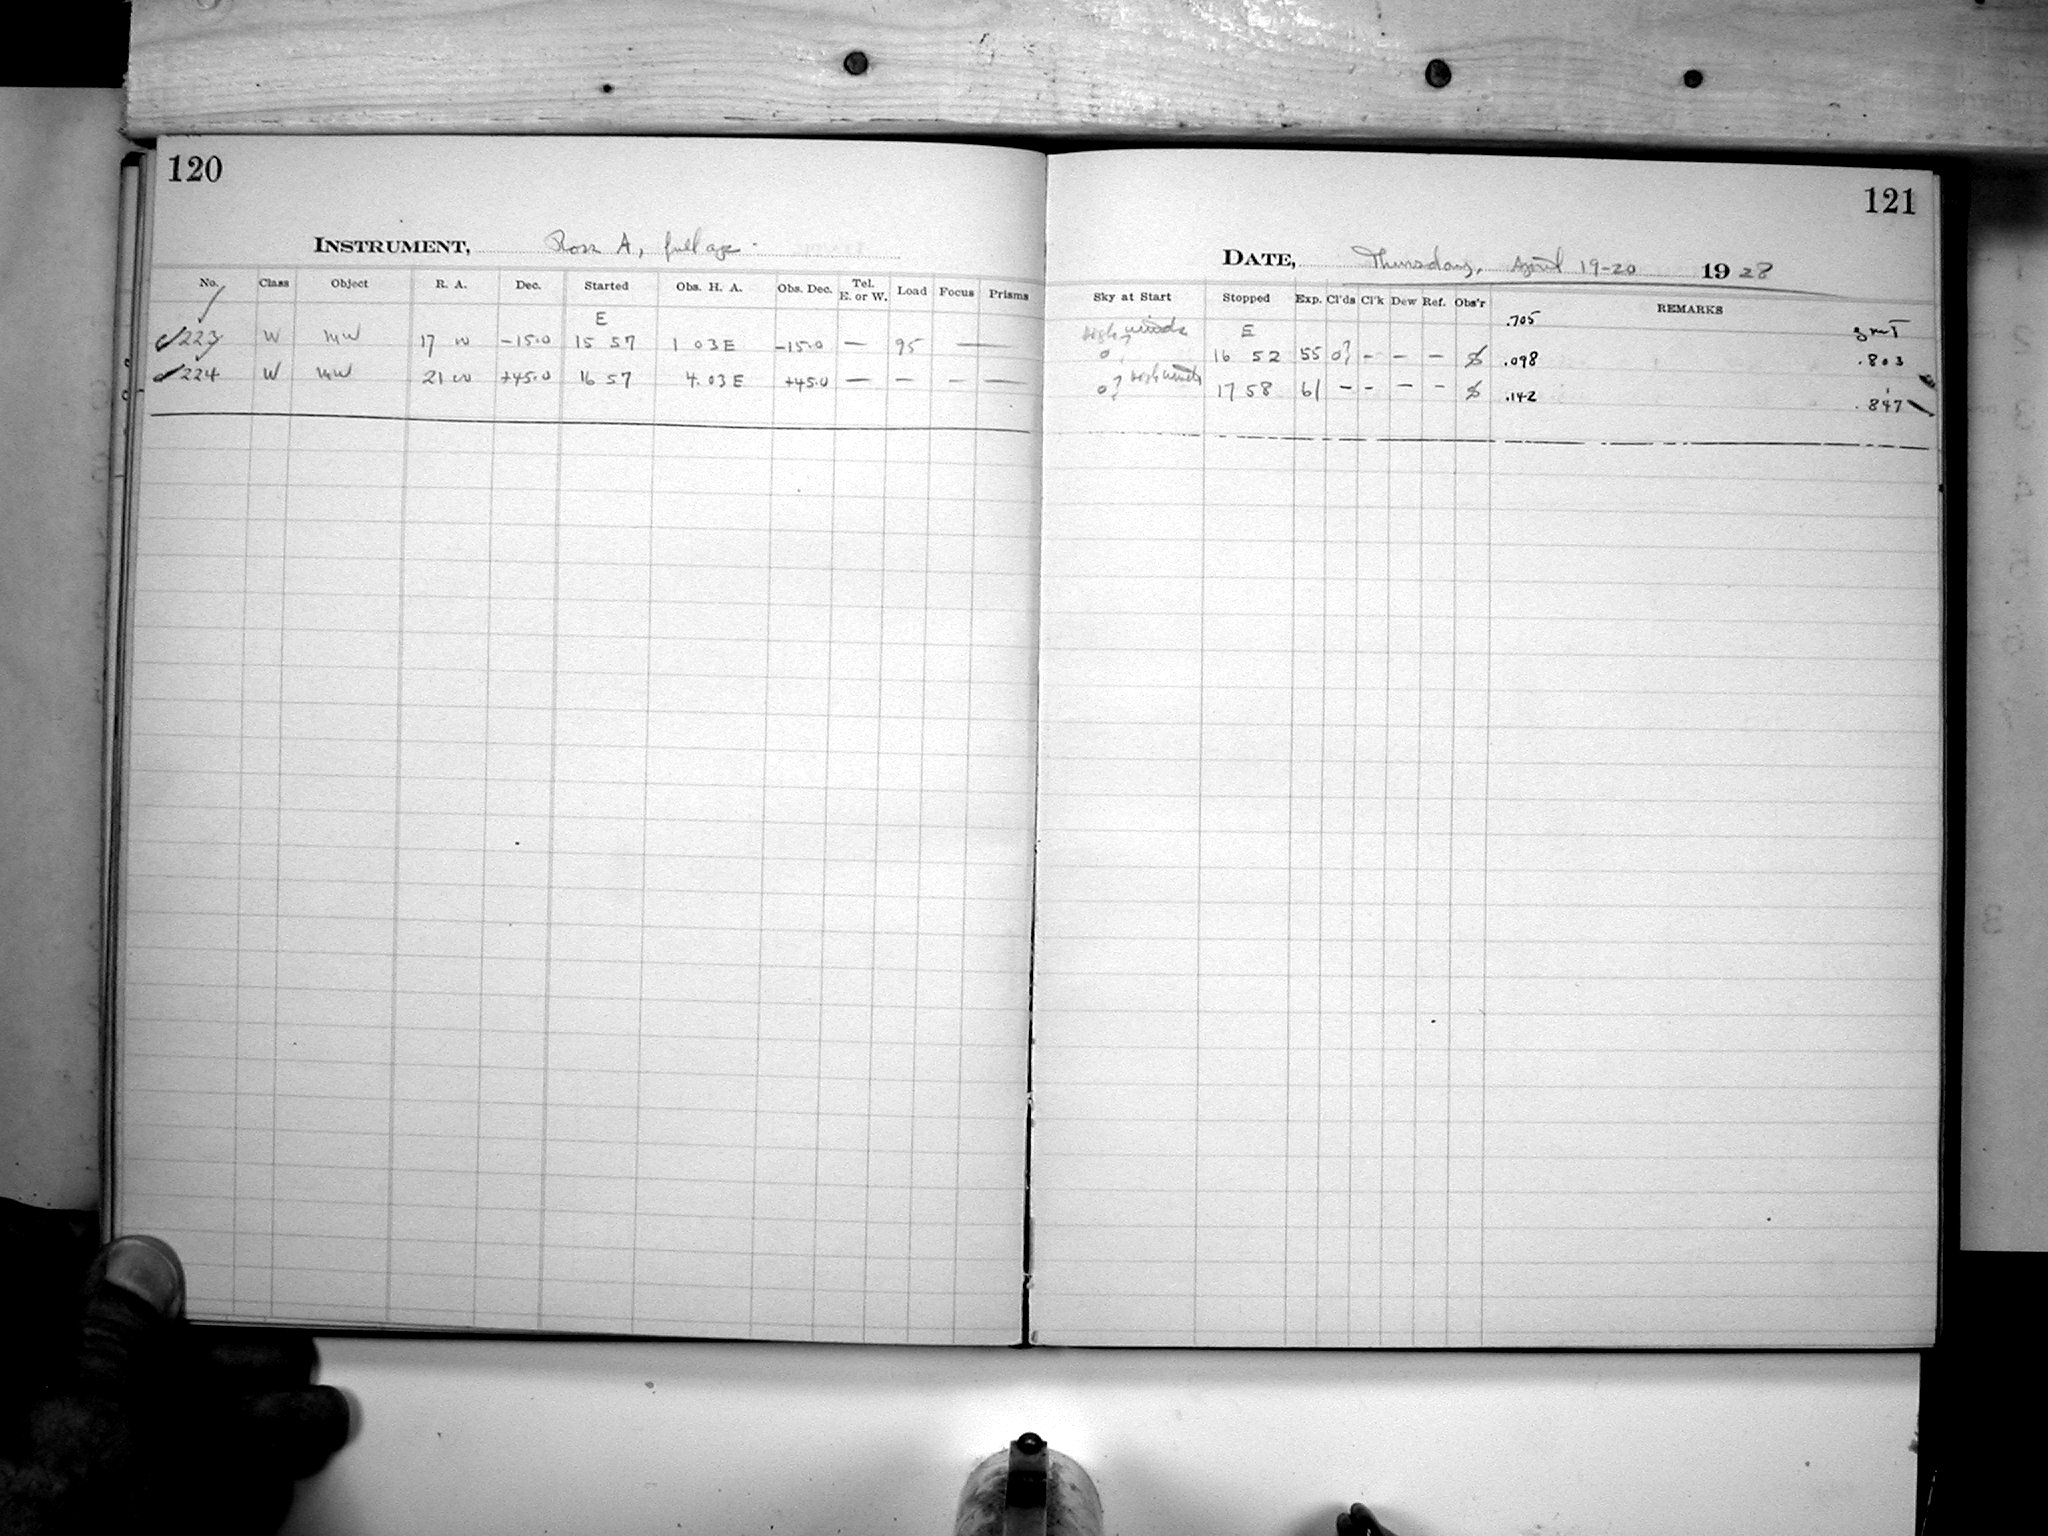 120
INSTRUMENT, Ross A, full ap.
No. Class Object R. A. Dec. Started Obs. H. A. Obs. Dec. Tel. E. or W. Load Focus Prisms
E
223 W MW 17 00 -15.0 15 57 1 03 E -15.0 — 95 —
224 W MW 21 00 +45.0 16 57 4.03 E +45.0 — — — —
121
DATE, Thursday, April 19-20 1928
Sky at Start Stopped Exp. Cl'ds Cl'k Dew Ref. Obs'r REMARKS
high winds E .705 GMT
0? 16 52 55 0? — — — .098 .803
0? high winds 17 58 61 — — — — .142 .847